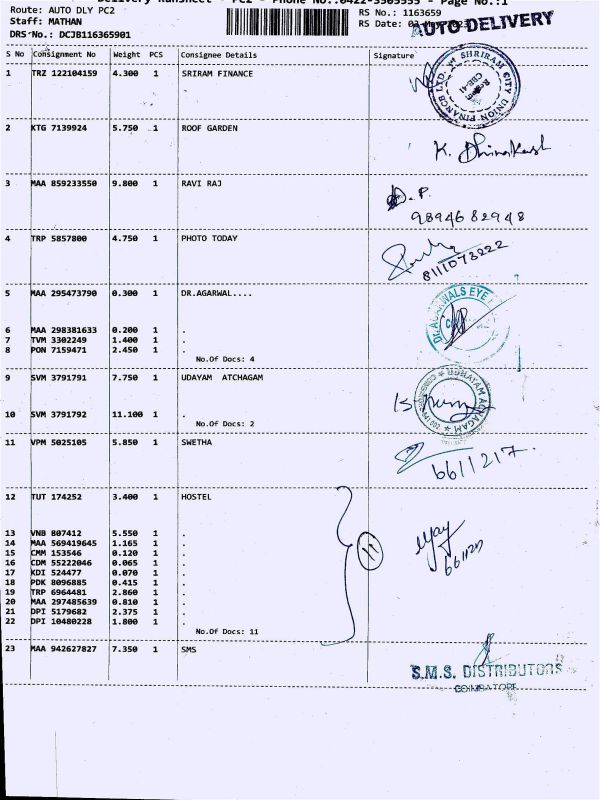 Delivery Runsheet - PC2 - Phone No.:0422-3505555 - Page No.:1
Route: AUTO DLY PC2
RS No.: 1163659
Staff: MATHAN
RS Date: 03
AUTO DELIVERY
DRS No.: DCJB116365901
S No Consignment No Weight PCS Consignee Details Signature
1 TRZ 122104159 4.300 1 SRIRAM FINANCE
SHRIRAM CITY UNION FINANCE LTD.
CBE-41
2 KTG 7139924 5.750 1 ROOF GARDEN
3 MAA 859233550 9.800 1 RAVI RAJ
D.P.
9894682948
4 TRP 5857800 4.750 1 PHOTO TODAY
8111073222
5 MAA 295473790 0.300 1 DR.AGARWAL....
DR.AGARWALS EYE
6 MAA 298381633 0.200 1 .
7 TVM 3302249 1.400 1 .
8 PON 7159471 2.450 1 .
No.Of Docs: 4
9 SVM 3791791 7.750 1 UDAYAM ATCHAGAM
10 SVM 3791792 11.100 1 .
No.Of Docs: 2
11 VPM 5025105 5.850 1 SWETHA
6611217.
12 TUT 174252 3.400 1 HOSTEL
13 VNB 807412 5.550 1 .
14 MAA 569419645 1.165 1 .
15 CMM 153546 0.120 1 .
16 CDM 55222046 0.065 1 .
17 KDI 524477 0.070 1 .
18 PDK 8096885 0.415 1 .
19 TRP 6964481 2.860 1 .
20 MAA 297485639 0.810 1 .
21 DPI 5179682 2.375 1 .
22 DPI 10480228 1.800 1 .
No.Of Docs: 11
11
23 MAA 942627827 7.350 1 SMS
S.M.S. DISTRIBUTORS
COIMBATORE